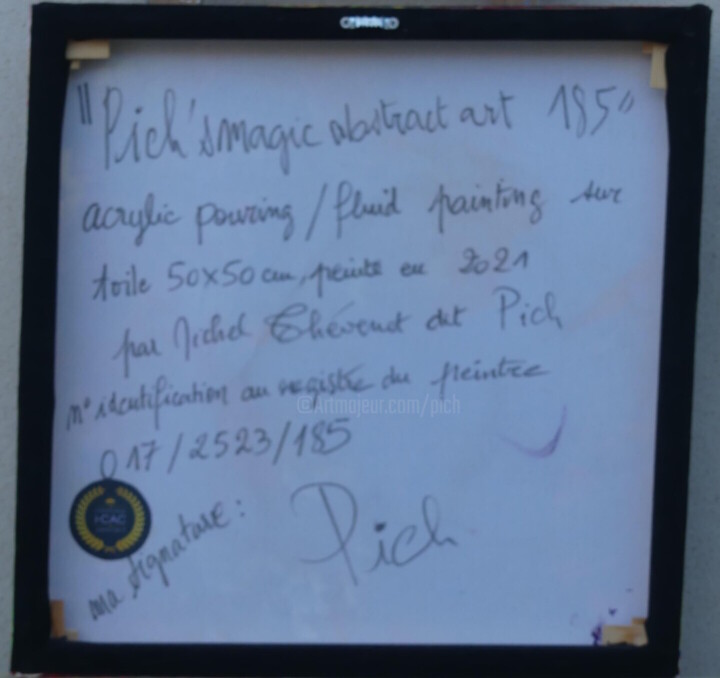 "Pich's magic abstract art 185"
acrylic pouring / fluid painting sur
toile 50x50 cm, peinte en 2021
par Michel Thévenot dit Pich
n° identification au registre du peintre
@Artmajeur.com/pich
017/2523/185
ICAC
ma signature : Pich